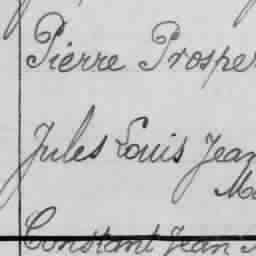 Pierre Prosper
Jules Louis Jean
Ma
Constant Jean